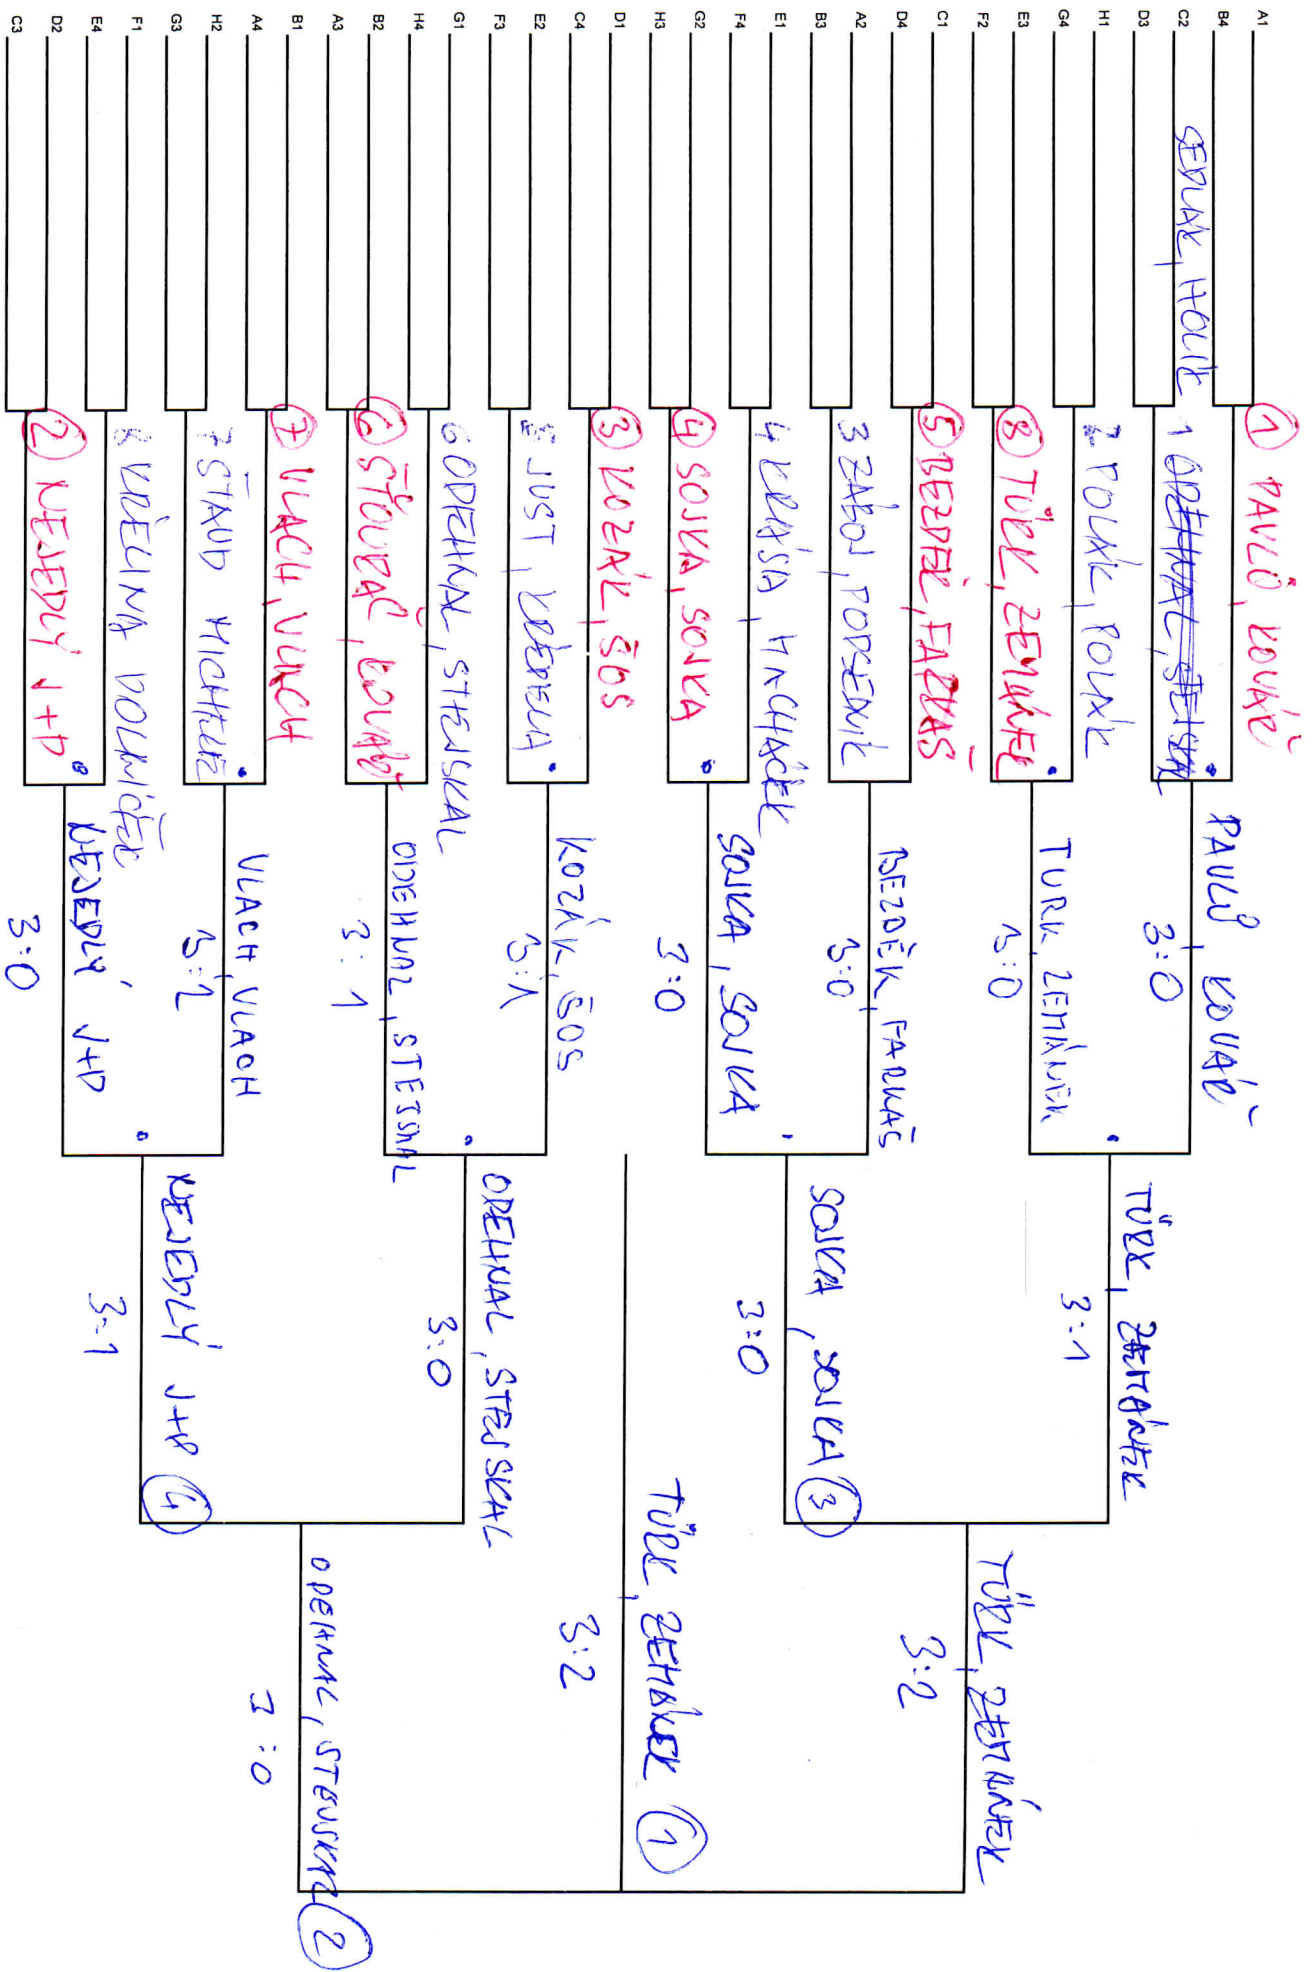 A1
B4
C2
D3
H1
G4
E3
F2
C1
D4
A2
B3
E1
F4
G2
H3
D1
C4
E2
F3
G1
H4
B2
A3
B1
A4
H2
G3
F1
E4
D2
C3
SEDLÁK, HOLIK
① PAVLŮ, KOVÁŘ
1 ODEHNAL, STEJSKAL
2 POLÁK, POLÁK
⑧ TÜRK, ZEMÁNEK
⑤ BEZDĚK, FARKAŠ
3 ZÁBOJ, PODSEDNÍK
4 KRÁSA, MACHÁČEK
④ SOJKA, SOJKA
③ KOZÁK, ŠOS
5 JUST,
6 ODEHNAL, STEJSKAL
⑥
⑦ VLACH, VLACH
7 STAUD
8 KŘELINA DOLNÍČEK
② NEJEDLÝ J+D
PAVLŮ, KOVÁŘ
3:0
TURK, ZEMÁNEK
3:0
BEZDĚK, FARKAŠ
3:0
SOJKA, SOJKA
3:0
KOZÁK, ŠOS
3:1
ODEHNAL, STEJSKAL
3:1
VLACH, VLACH
3:2
NEJEDLÝ, J+D
3:0
TÜRK, ZEMÁNEK
3:1
SOJKA, SOJKA ③
3:0
ODEHNAL, STEJSKAL
3:0
NEJEDLÝ J+D ④
3:1
TÜRK, ZEMÁNEK
3:2
ODEHNAL, STEJSKAL ②
3:0
TÜRK, ZEMÁNEK ①
3:2